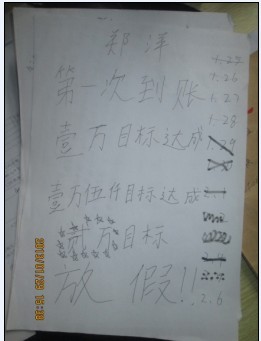 郑洋
第一次到账
壹万目标达成
壹万伍仟目标达成...
贰万目标
放 假!!
1.22
1.26
1.27
1.28
1.29
2.6